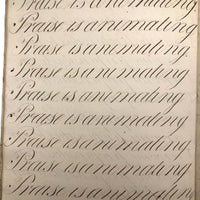 Praise is animating
Praise is animating
Praise is animating
Praise is animating
Praise is animating
Praise is animating
Praise is animating.
Praise is animating
Praise is animating